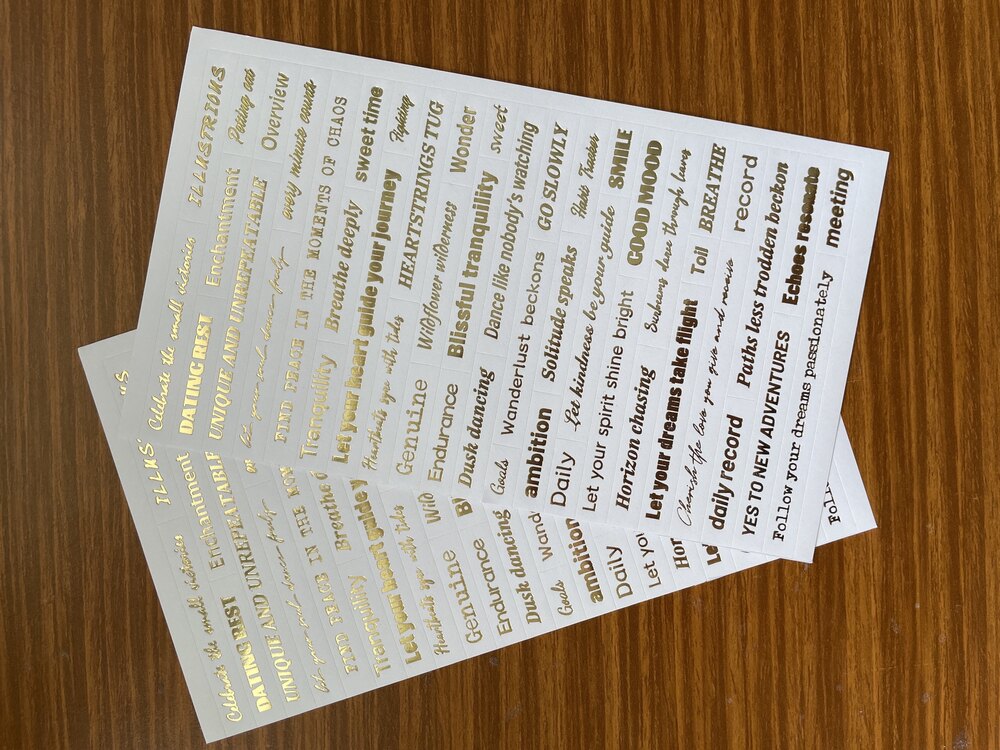 Celebrate the small victories ILLUSTRIOUS
DATING REST Enchantment Petting cats
UNIQUE AND UNREPEATABLE Overview
let your soul dance freely every minute counts
FIND PEACE IN THE MOMENTS OF CHAOS
Tranquility Breathe deeply sweet time
Let your heart guide your journey Fighting
Heartbeats sync with tides HEARTSTRINGS TUG
Genuine Wildflower wilderness Wonder
Endurance Blissful tranquility sweet
Dusk dancing Dance like nobody's watching
Goals Wanderlust beckons GO SLOWLY
ambition Solitude speaks Habit Train
Daily Let kindness be your guide SMILE
Let your spirit shine bright GOOD MOOD
Horizon chasing Sunbeams dance through leaves
Let your dreams take flight Toll BREATHE
Cherish the love you give and receive record
daily record Paths less trodden beckon
YES TO NEW ADVENTURES Echoes resonate
Follow your dreams passionately meeting
Celebrate the small victories ILLUS
DATING REST Enchantment
UNIQUE AND UNREPEATABLE
let your soul dance freely
FIND PEACE IN THE MOM
Tranquility Breathe d
Let your heart guide y
Heartbeats sync with tides
Genuine Wild
Endurance Bl
Dusk dancing
Goals Wand
ambition
Daily
Let you
Hor
Le
Follo